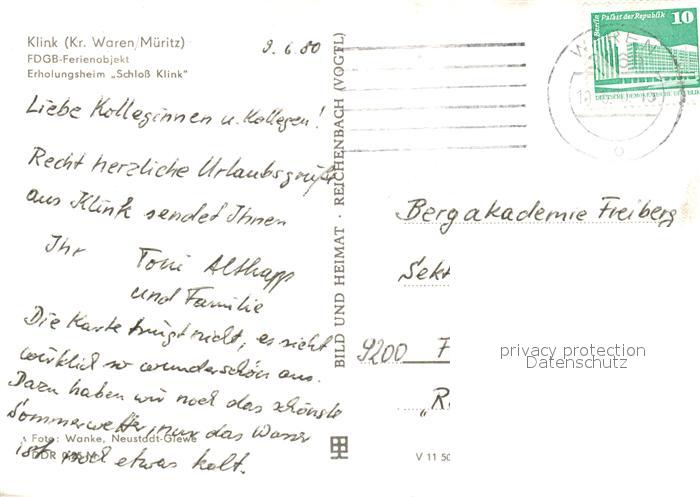 Klink (Kr. Waren/Müritz)
FDGB-Ferienobjekt
Erholungsheim „Schloß Klink"
9.6.80
Liebe Kolleginnen u. Kollegen!
Recht herzliche Urlaubsgrüße
aus Klink sendet Ihnen
Ihr Toni
und Familie
Die Karte trügt nicht, es sieht
wirklich so wunderschön aus.
Dazu haben wir noch das schönste
Sommerwetter, nur das Wasser
ist noch etwas kalt.
Foto: Wanke, Neustadt-Glewe
BILD UND HEIMAT · REICHENBACH (VOGTL)
V 11 50
Berlin Palast der Republik 10
DEUTSCHE DEMOKRATISCHE REPUBLIK
WAREN
Bergakademie Freiberg
Sekt
9200 F
„R
privacy protection
Datenschutz